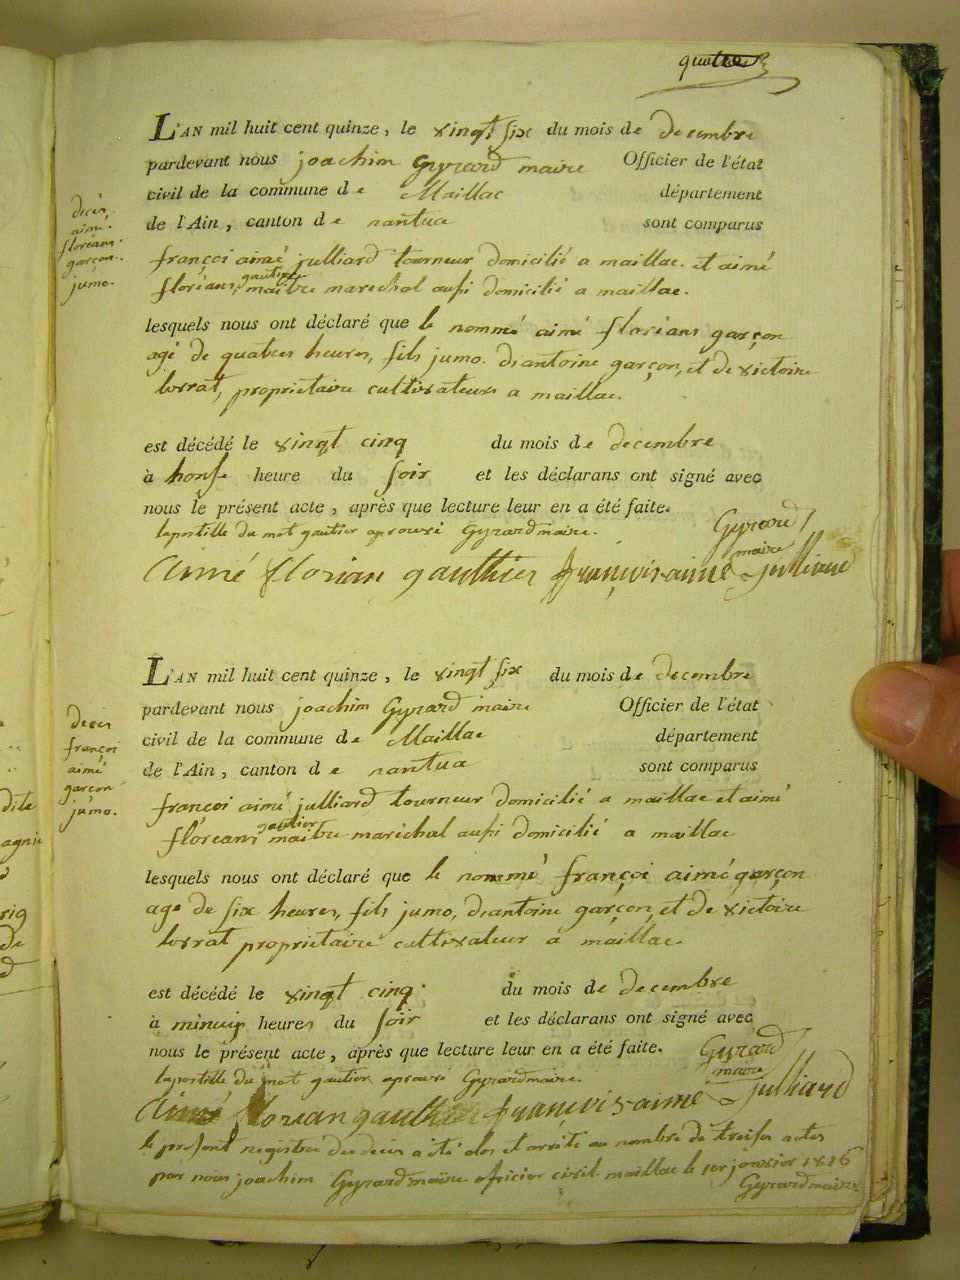 L'AN mil huit cent quinze, le vingt six du mois de decembre
pardevant nous joachim Gyrard maire Officier de l'état
civil de la commune de Maillac département
de l'Ain, canton de nantua sont comparus
decès
aimé
floriens
garçon
jumo.
françoi aimé julliard tourneur domicilié a maillac. et aimé
floriens, gautier maitre marechal aussi domicilié a maillac.
lesquels nous ont déclaré que le nommé aimé floriens garçon
agé de quatres heures, fils jumo. d'antoine garçon, et de victoire
lorrat, proprietaire cultivateurs a maillac.
est décédé le vingt cinq du mois de decembre
à honse heure du soir et les déclarans ont signé avec
nous le présent acte, après que lecture leur en a été faite.
lapostille du mot gautier aprouvé Gyrard maire. Gyrard
maire
aimé florian gauthier françois aimé julliard
L'AN mil huit cent quinze, le vingt six du mois de decembre
pardevant nous joachim Gyrard maire Officier de l'état
civil de la commune de Maillac département
de l'Ain, canton de nantua sont comparus
deces
françoi
aimé
garçon
jumo.
françoi aimé julliard tourneur domicilié a maillac et aimé
floreans gautier maitre marichal aussi domicilié a maillac
lesquels nous ont déclaré que le nommé françoi aimé garçon
age de six heures, fils jumo, d'antoine garçon, et de victoire
lorrat proprietaire cultivateur a maillac.
est décédé le vingt cinq. du mois de decembre
à minuis heures du soir et les déclarans ont signé avec
nous le présent acte, après que lecture leur en a été faite. Gyrard
maire
lapostille du mot gautier aprouvé Gyrard maire.
aimé florian gauthier françois aimé julliard
le present registre des deces a eté clos et arrité au nombre de treises actes
par nous joachim Gyrard maire oficier civil maillac le 1er janvier 1816
Gyrard maire